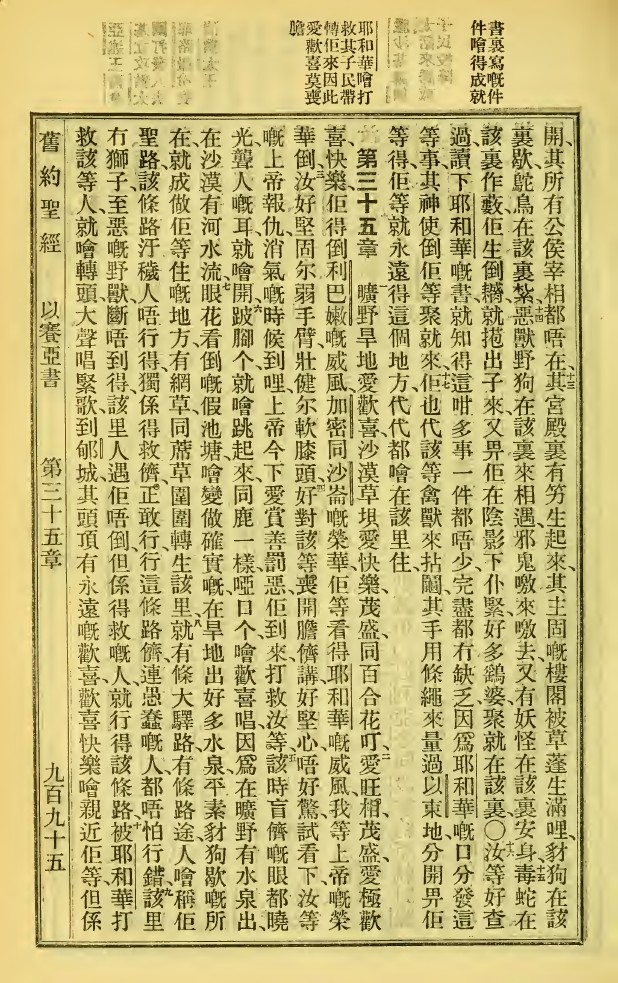 書裏寫嘅件
件噲得成就
耶和華噲打
救其子民帶
轉佢來因此
愛歡喜莫喪
膽
開、其所有公侯宰相都唔在、十三其宮殿裏有竻生起來、其土固嘅樓閣被草蓬生滿哩、豺狗在該
裏歇、鴕鳥在該裏紥、十四惡獸野狗在該裏來相遇、邪鬼噭來噭去、又有妖怪在該裏安身、十五毒蛇在
該裏作藪、佢生倒䎬就㧡出子來、又畀佢在陰影下仆緊、好多鷂婆聚就在該裏、○十六汝等好查
過、讀下耶和華嘅書、就知得這咁多事、一件都唔少、完盡都冇缺乏、因爲耶和華嘅口分發這
等事、其神使倒佢等聚就來、十七佢也代該等禽獸來拈鬮、其手用條繩來量過、以束地分開畀佢
等得、佢等就永遠得這個地方、代代都噲在該里住、
第三十五章　一曠野旱地愛歡喜、沙漠草垻愛快樂、茂盛同百合花叮、二愛旺相茂盛、愛極歡
喜快樂、佢得倒利巴嫩嘅威風、加密同沙崙嘅榮華、佢等看得耶和華嘅威風、我等上帝嘅榮
華倒、三汝好堅固尔弱手臂、壯健尔軟膝頭、四好對該等喪開膽儕講、好堅心唔好驚、試看下汝等
嘅上帝、報仇消氣嘅時候到哩、上帝今下愛賞善罰惡、佢到來打救汝等、五該時盲儕嘅眼都曉
光、聾人嘅耳就噲開、六跛腳个就噲跳起來、同鹿一樣、啞口个噲歡喜唱、因爲在曠野有水泉出、
在沙漠有河水流、七眼花看倒嘅假池塘、噲變做確實嘅、在旱地出好多水泉、平素豺狗歇嘅所
在、就成做佢等住嘅地方、有網草同蓆草圍圍轉生、八該里就有條大驛路、有條途、人噲稱佢
聖路、該條路汙穢人唔行得、獨係得救儕正敢行、行這條路儕、連愚蠢嘅人、都唔怕行錯、九該里
冇獅子、至惡嘅野獸、斷唔到得、該里人遇佢唔倒、但係得救嘅人、就行得該條路、十被耶和華打
救該等人、就噲轉頭、大聲唱緊歌到郇城、其頭頂有永遠嘅歡喜、歡喜快樂噲親近佢等、但係
舊約聖經　以賽亞書　第三十五章　九百九十五